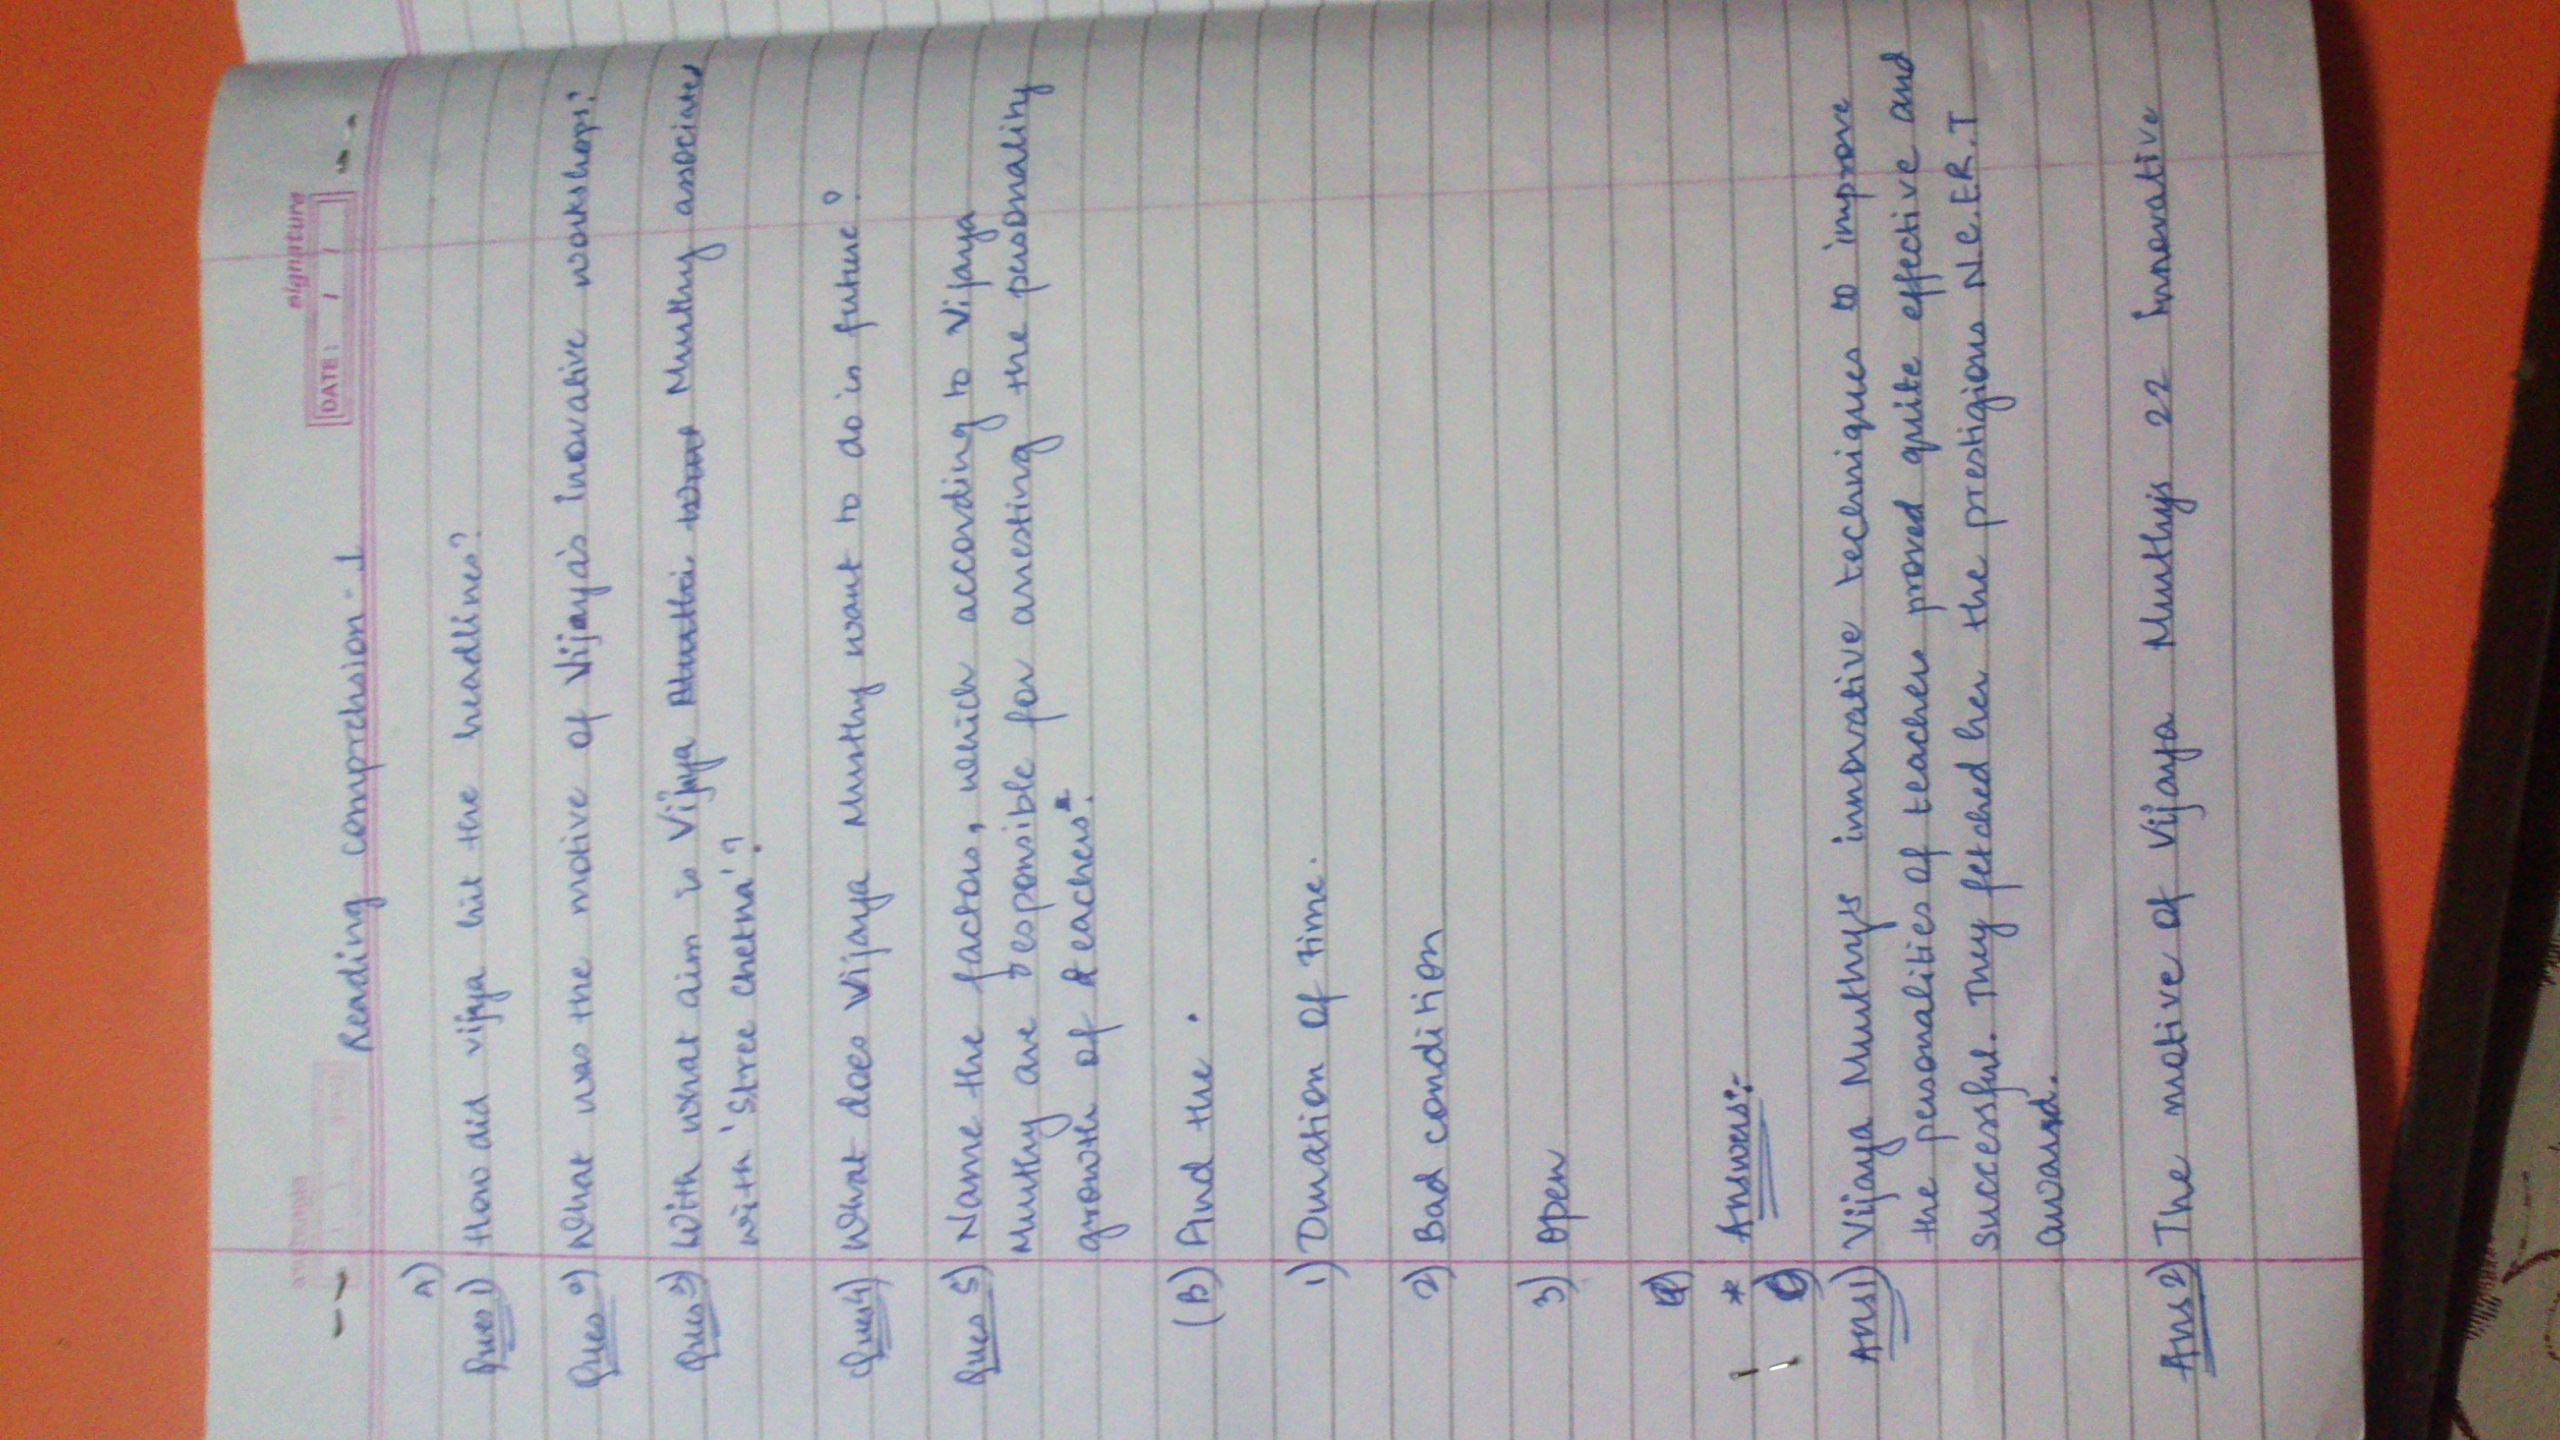 signature
DATE: / /
Reading comprehsion - 1
A)
Ques 1) How did vijya hit the headlines?
Ques 2) What was the motive of Vijaya's Inovative workshops?
Ques 3) With what aim is Vijya Murthy associated
with 'Stree Chetna'?
Ques 4) What does Vijaya Murthy want to do in future?
Ques 5) Name the factors, which according to Vijaya
Murthy are responsible for arresting the personality
growth of teachers?
(B) Find the .
1) Duration of time.
2) Bad condition
3) open
* Answers:-
Ans 1) Vijaya Murthy's innovative techniques to improve
the personalities of teachers proved quite effective and
successful. They fetched her the prestigious N.C.ER.T
award.
Ans 2) The motive of Vijaya Murthy's 22 Innovative